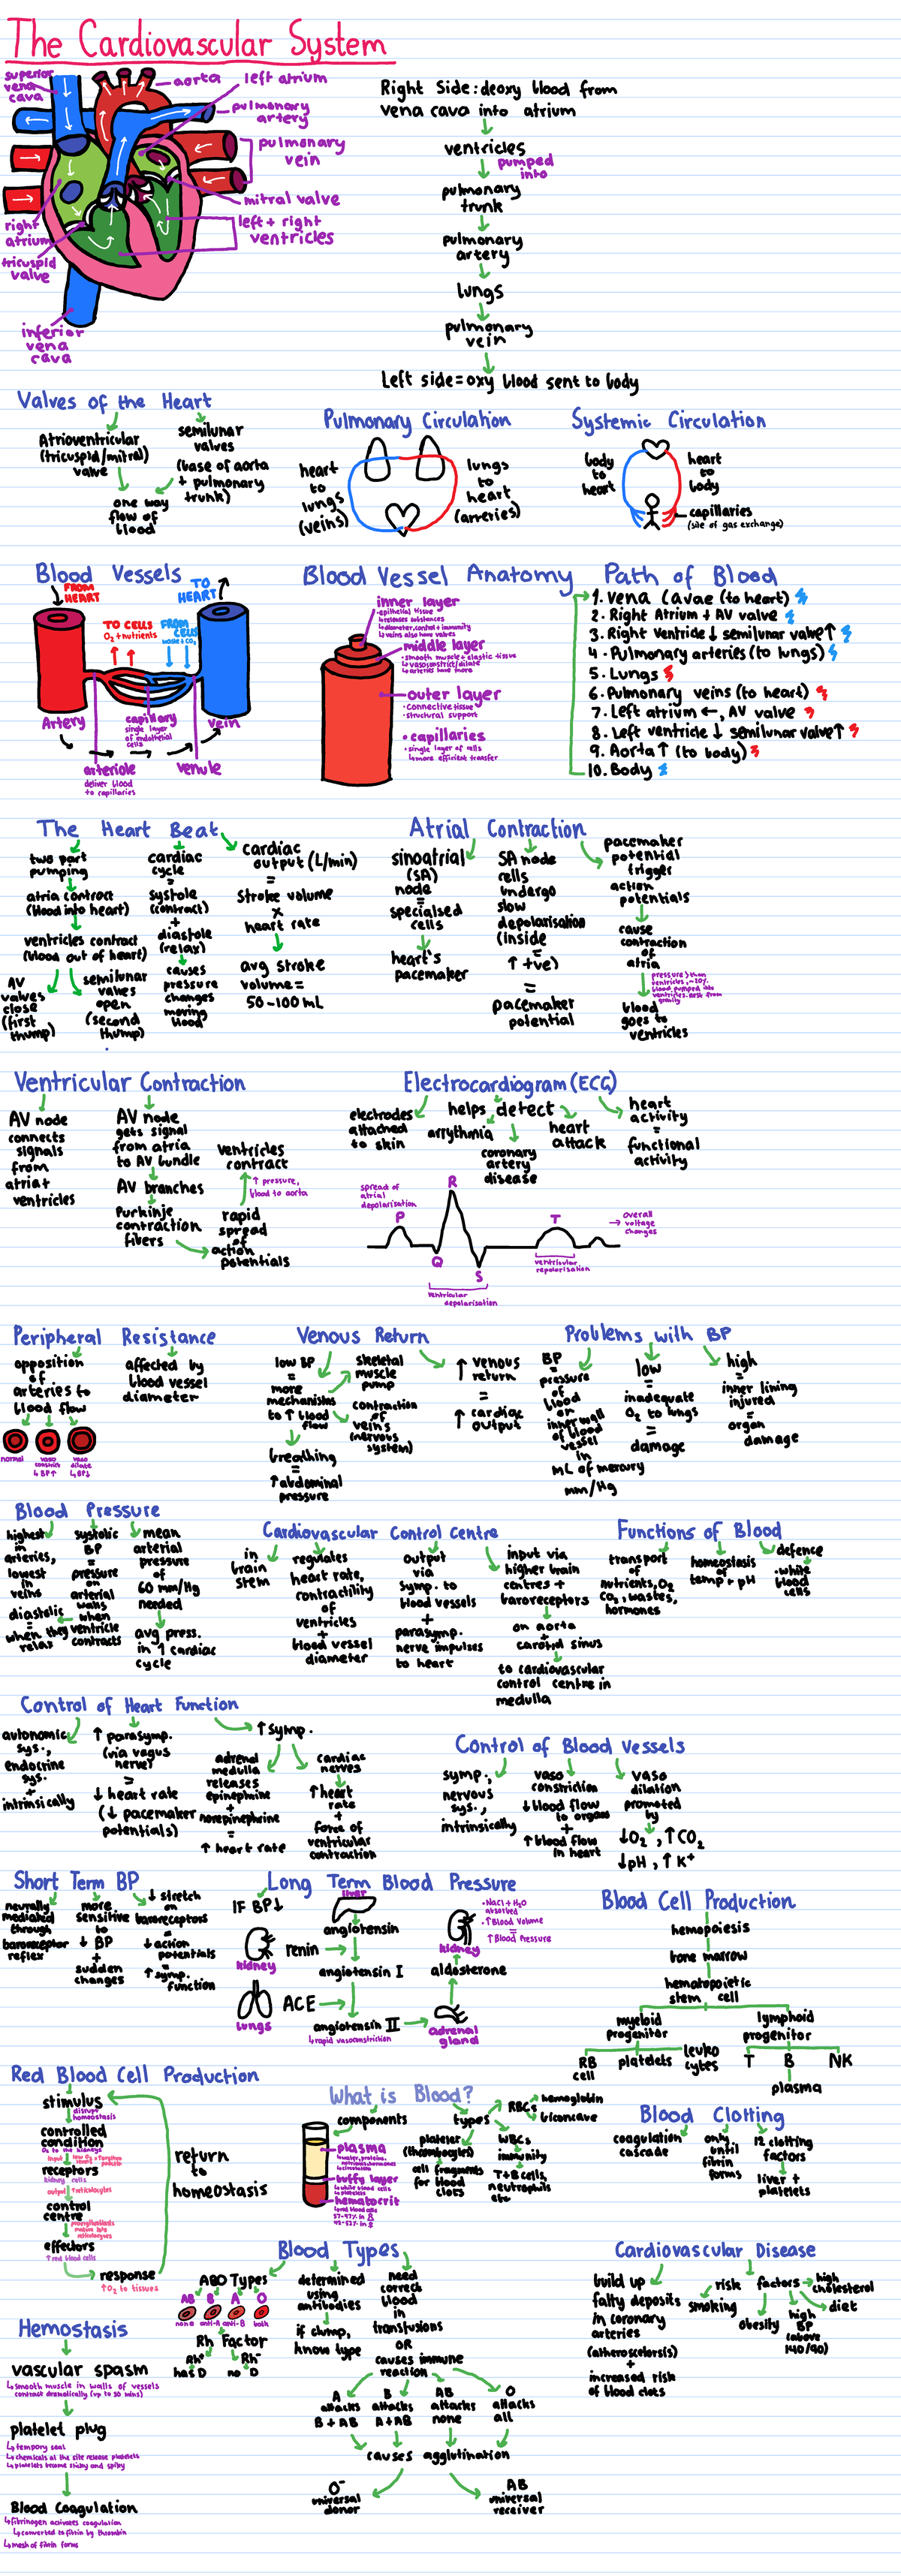 The Cardiovascular System
superior
vena
cava
aorta
left atrium
pulmonary
artery
pulmonary
vein
mitral valve
left + right
ventricles
right
atrium
tricuspid
valve
inferior
vena
cava
Right Side: deoxy blood from
vena cava into atrium
ventricles
pumped
into
pulmonary
trunk
pulmonary
artery
lungs
pulmonary
vein
Left side = oxy blood sent to body
Valves of the Heart
Atrioventricular
(tricuspid/mitral)
valve
semilunar
valves
(base of aorta
+ pulmonary
trunk)
one way
flow of
blood
Pulmonary Circulation
heart
to
lungs
(veins)
lungs
to
heart
(arteries)
Systemic Circulation
body
to
heart
heart
to
body
capillaries
(site of gas exchange)
Blood Vessels
FROM
HEART
TO
HEART
TO CELLS
O2 + nutrients
FROM
CELLS
waste + CO2
Artery
capillary
single layer
of endothelial
cells
vein
arteriole
deliver blood
to capillaries
venule
Blood Vessel Anatomy
inner layer
• epithelial tissue
↳ releases substances
↳ diameter control + immunity
↳ veins also have valves
middle layer
• smooth muscle + elastic tissue
↳ vasoconstrict/dilate
↳ arteries have more
outer layer
• connective tissue
• structural support
• capillaries
• single layer of cells
↳ more efficient transfer
Path of Blood
1. Vena Cavae (to heart)
2. Right Atrium + AV valve
3. Right Ventricle ↓ semilunar valve ↑
4. Pulmonary arteries (to lungs)
5. Lungs
6. Pulmonary veins (to heart)
7. Left atrium ←, AV valve
8. Left ventricle ↓ semilunar valve ↑
9. Aorta ↑ (to body)
10. Body
The Heart Beat
two part
pumping
atria contract
(blood into heart)
ventricles contract
(blood out of heart)
AV
valves
close
(first
thump)
semilunar
valves
open
(second
thump)
cardiac
cycle
=
systole
(contract)
+
diastole
(relax)
causes
pressure
changes
moving
blood
cardiac
output (L/min)
=
stroke volume
x
heart rate
avg stroke
volume =
50-100 mL
Atrial Contraction
sinoatrial
(SA)
node
=
specialsed
cells
heart's
pacemaker
SA node
cells
undergo
slow
depolarisation
(inside
=
↑ +ve)
=
pacemaker
potential
pacemaker
potential
trigger
action
potentials
cause
contraction
of
atria
pressure > than
ventricles, ~20%
blood pumped into
ventricles, rest from
gravity
blood
goes to
ventricles
Ventricular Contraction
AV node
connects
signals
from
atria +
ventricles
AV node
gets signal
from atria
to AV bundle
AV branches
Purkinje
contraction
fibers
rapid
spread
of
action
potentials
↑ pressure,
blood to aorta
ventricles
contract
Electrocardiogram (ECG)
electrodes
attached
to skin
helps detect
arrythmia
coronary
artery
disease
heart
attack
heart
activity
=
functional
activity
spread of
atrial
depolarisation
P
Q
R
S
T
ventricular
depolarisation
ventricular
repolarisation
→ overall
voltage
changes
Peripheral Resistance
opposition
of
arteries to
blood flow
normal
vaso
constrict
↳ BP↑
vaso
dilate
↳ BP↓
affected by
blood vessel
diameter
Venous Return
low BP
=
more
mechanisms
to ↑ blood
flow
skeletal
muscle
pump
contraction
of
veins
(nervous
system)
breathing
=
↑ abdominal
pressure
↑ venous
return
=
↑ cardiac
output
Problems with BP
BP
=
pressure
of
blood
on
inner wall
of blood
vessel
in
mL of mercury
mm/Hg
low
=
inadequate
O2 to lungs
=
damage
high
=
inner lining
injured
=
organ
damage
Blood Pressure
highest
in
arteries,
lowest
in
veins
systolic
BP
=
pressure
on
arterial
walls
when
ventricle
contracts
diastolic
=
when they
relax
mean
arterial
pressure
of
60 mm/Hg
needed
avg press.
in 1 cardiac
cycle
Cardiovascular Control Centre
in
brain
stem
regulates
heart rate,
contractility
of
ventricles
+
blood vessel
diameter
output
via
symp. to
blood vessels
+
parasymp.
nerve impulses
to heart
input via
higher brain
centres +
baroreceptors
on aorta
+
carotid sinus
to cardiovascular
control centre in
medulla
Functions of Blood
transport
of
nutrients, O2
CO2, wastes,
hormones
homeostasis
of
temp + pH
defence
• white
blood
cells
Control of Heart Function
autonomic
sys.,
endocrine
sys.
+
intrinsically
↑ parasymp.
(via vagus
nerve)
=
↓ heart rate
(↓ pacemaker
potentials)
↑ symp.
adrenal
medulla
releases
epinephrine
+
norepinephrine
=
↑ heart rate
cardiac
nerves
↑ heart
rate
+
force of
ventricular
contraction
Control of Blood Vessels
symp.,
nervous
sys.,
intrinsically
vaso
constriction
↓ blood flow
to organs
+
↑ blood flow
in heart
vaso
dilation
promoted
by
↓O2, ↑CO2
↓pH, ↑K+
Short Term BP
neurally
mediated
through
baroreceptor
reflex
more
sensitive
to
↓ BP
+
sudden
changes
↓ stretch
on
baroreceptors
=
↓ action
potentials
=
↑ symp.
function
Long Term Blood Pressure
IF BP↓
kidney
renin
lungs
ACE
liver
angiotensin
angiotensin I
angiotensin II
↳ rapid vasoconstriction
adrenal
gland
aldosterone
kidney
• NaCl + H2O
absorbed
• ↑ Blood Volume
=
↑ Blood Pressure
Blood Cell Production
hemopoiesis
bone marrow
hematopoietic
stem cell
myeloid
progenitor
lymphoid
progenitor
RB
cell
platelets
leuko
cytes
T
B
NK
plasma
Red Blood Cell Production
stimulus
disrupt
homeostasis
controlled
condition
O2 to the kidneys
receptors
kidney cells
output ↑ reticulocytes
control
centre
effectors
↑ red blood cells
response
↑ O2 to tissues
return
to
homeostasis
What is Blood?
components
plasma
buffy layer
↳ white blood cells
↳ platelets
hematocrit
↳ red blood cells
types
platelet
(thrombocytes)
cell fragments
for blood
clots
WBCs
immunity
T + B cells,
neutrophils
etc
RBCs
hemoglobin
biconcave
Blood Clotting
coagulation
cascade
only
until
fibrin
forms
12 clotting
factors
liver +
platelets
Blood Types
ABO Types
AB B A O
none anti-A anti-B both
Rh Factor
Rh+
has D
Rh-
no D
determined
using
antibodies
if clump,
know type
need
correct
blood
in
transfusions
OR
causes immune
reaction
A
attacks
B + AB
B
attacks
A + AB
AB
attacks
none
O
attacks
all
causes agglutination
O-
universal
donor
AB
universal
receiver
Cardiovascular Disease
build up
fatty deposits
in coronary
arteries
(atherosclerosis)
+
increased risk
of blood clots
risk factors
smoking
obesity
high
BP
(above
140/90)
diet
high
cholesterol
Hemostasis
vascular spasm
↳ smooth muscle in walls of vessels
contract dramatically (up to 30 mins)
platelet plug
↳ tempory seal
↳ chemicals at the site release platelets
↳ platelets become sticky and spiky
Blood Coagulation
↳ fibrinogen activates coagulation
↳ converted to fibrin by thrombin
↳ mesh of fibrin forms